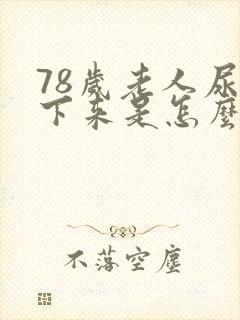 78歲老人尿
下來是怎麼
不落空塵